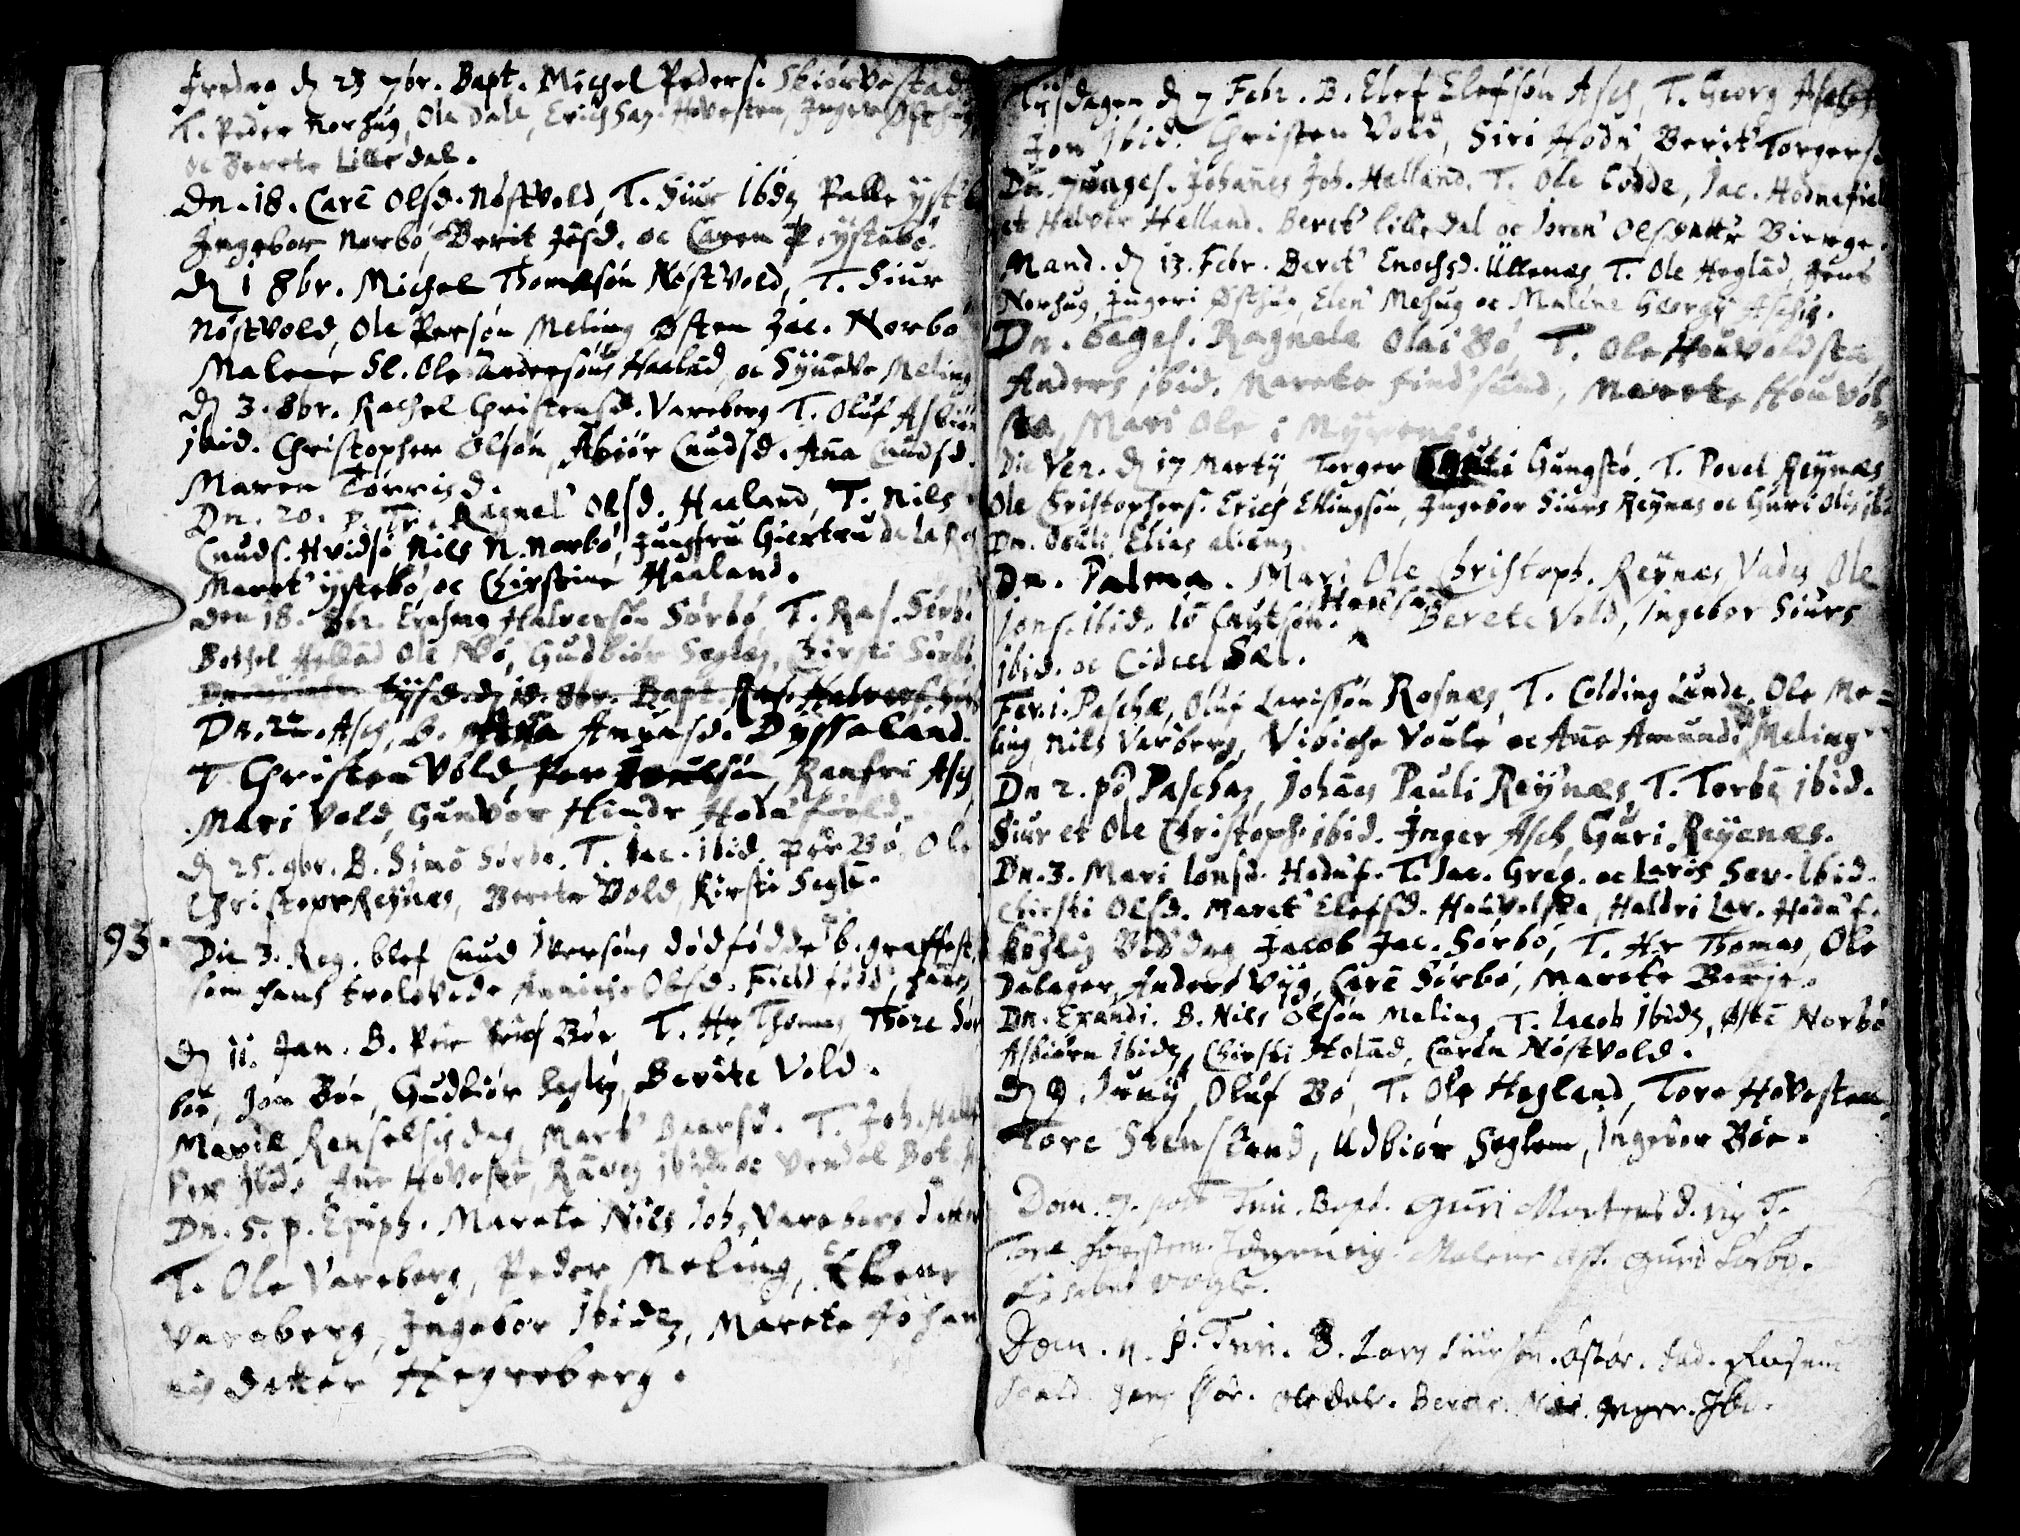 Fredag d 23 7br. Bapt. Michel Peders. Skiørvestad
T. Peder Norhug, Ole Dale, Erich Haz. Hovesten, Inger Østhug
oc Berete Lilledal.
Dn. 18. Carē Olsd. Nøstvold, T. Siur Ibid Palle yst
Ingebor Norbø, Berit Jøsd. oc Caren Øystebø.
d 1 8br. Michel Thomæsøn Nøstvold, T. Siur
Nøstvold, Ole Persøn Meling Østen Jac. Norbø
Malene Sl. Ole Andersøns Haaland, oc Syneve Meling
d 3. 8br. Rachel Christensd. Vareberg T. Oluf Asbiør
ibid. Christopher Olsøn, Abiør Cnudsd. Aña Cnudsd.
Maren Torrisd.
Dn. 20. p. Tr. Ragnel Olsd. Haaland, T. Nils
Cnuds. Hvidsø, Nils N. Norbø, Jungfru Giertru de la Ros
Maret ystebø, oc Chirstine Haaland.
den 18. 8br. Erasmus Halversøn Sørbø, T. Ras. Sørbø
Bothel Helland Ole Bø, Gudbiør Seglem, Chirsti Sørbø
tysd. d 18. 8br. Bapt. Ras. Halvers.
Dn. 22. Asch, B. Anna Amunsd. Dyssaland.
T. Christen Vold, Per Poulsøn, Ranfri Asch
Mari Vold, Gunvor Hindr Hodnefield.
d 25. 9br. B. Simō Sørbø. T. Jac. ibid. Per Bø, Ole
Christopr Reynæs, Berete Vold, Kirsti Seglē.
93. Die 3. Reg. blef Cnud Iversøns dødfødde b. graffest
som hans trolovede Anniche Olsd. Field fødd,
d 11. Jan. B. Per Bøe, T. Hr Thomas Thore Sør
bøe, Jon Bøe, Gudbiør Seglem, Berite Vold.
Mariæ Renselsis dag, Maret T. Joh. Hell
Per ibid. Ane Hoveste, ibid. oc Vendel Bot.
Dn. 5. p. Epiph. Marete Nils Joh. Varebergs datter
T. Ole Vareberg, Peder Meling, Elene
Vareberg, Ingebor Ibid, Marete Johan
nis datter Hegreberg.
Tysdagen d 7 Febr. B. Elef Elefsøn Asch, T. Georg
Jon ibid. Christen Vold, Siri Hodn, Berit Torgers
Dn. 7uages. Johañes Joh. Helland. T. Ole Todde, Jac. Hodnefiel
et Halvor Helland. Beret Lilledal oc Joren Olsdatter Bierge.
Mand. d 13. Febr. Beret Enochsd. Ullenæs T. Ole Heglād, Jens
Norhug, Ingeri Østhug, Elen Mehug oc Malene Georgs Aschis.
Dn. 6ages. Ragnele Olai Bø, T. Ole Houvoldstā
Anders ibid. Marete Findsund, Marete Houvol
sta, Mari Ole i Myrene.
Die Ven. d 17 Martij Torger Gungstø. T. Povel Reynæs
Ole Christophers. Erich Ellingsøn, Ingebor Siurs Reynæs oc Guri Olis ibid
Dn. Oculi Elias
Dn. Palma. Mari Ole Christoph. Reynæs Vadū Ole
Jons. ibid. Jō Cnutsøn. Berete Vold, Ingebor Siurs
ibid. oc Cidcel Sæl.
Fer. 1. Paschæ, Oluf Larissøn Rosnæs, T. Colding Lunde, Ole Me=
ling, Nils Varberg, Viviche Voule oc Añe Amunds Meling
Dn 2. po. Paschaz, Johañes Pauli Reynæs, T. Torbē ibid.
Siur et Ole Christoph. ibid. Inger Asch, Guri Reyenæs.
Dn. 3. Mari Jonsd. Hodnf. T. Jac. Greg. oc Laris Sev. ibid.
Chirsti Olsd. Maret Elefsd. Houvolsta, Haldri Lar. Hodnf.
Køylig Beddag Jacob Jac. Sørbø, T. Hr Thomas, Ole
Dalager, Anders Vyg, Carē Sørbø, Marete Berje.
Dn. Exaudi. B. Nils Olsøn Meling, T. Jacob Ibid, Østē Norbø
Asbiørn ibid, Chirsti Holād, Caren Nøstvold.
d 9. Junij, Oluf Bø, T. Ole Hegland, Tore Hovesten
Tore Stensland, Udbiør Seglem, Ingebor Bøe.
Dom. 7. post Trin. Bapt. Guri Mortensd. vig T.
Tore Hovesten. Malene Asch. Guri Sørbø.
Lisabet
Dom. 11. p. Trin. B. Lars Siursøn. Østør. Fad. Rasmus
Jens Bøe. Ole Dale. Berete. Inger. Ibid.